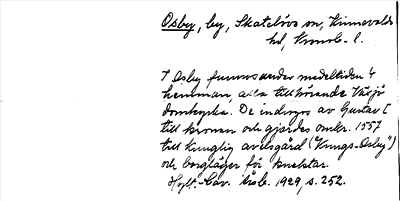 Osby, by, Skatelövs sn, Kinnevalds
hd, Kronob. l.
I Osby funnos under medeltiden 4
hemman, alla tillhörande Växjö
domkyrka. De indrogos av Gustav I
till kronan och gjordes omkr. 1557
till kunglig avelsgård ("Kungs-Osby")
och borgläger för knektar.
Hylt.-Cav. Årsb. 1929, s. 252.